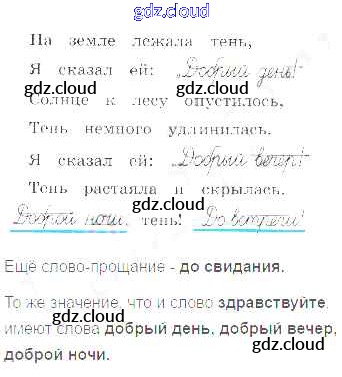 gdz.cloud
На земле лежала тень,
Я сказал ей: „Добрый день!“
gdz.cloud gdz.cloud
Солнце к лесу опустилось,
Тень немного удлинилась.
Я сказал ей: „Добрый вечер!“
gdz.cloud gdz.cloud
Тень растаяла и скрылась.
gdz.cloud
Доброй ночи, тень! До встречи!
Ещё слово-прощание - до свидания.
То же значение, что и слово здравствуйте,
gdz.cloud gdz.cloud
имеют слова добрый день, добрый вечер,
gdz.cloud
доброй ночи.